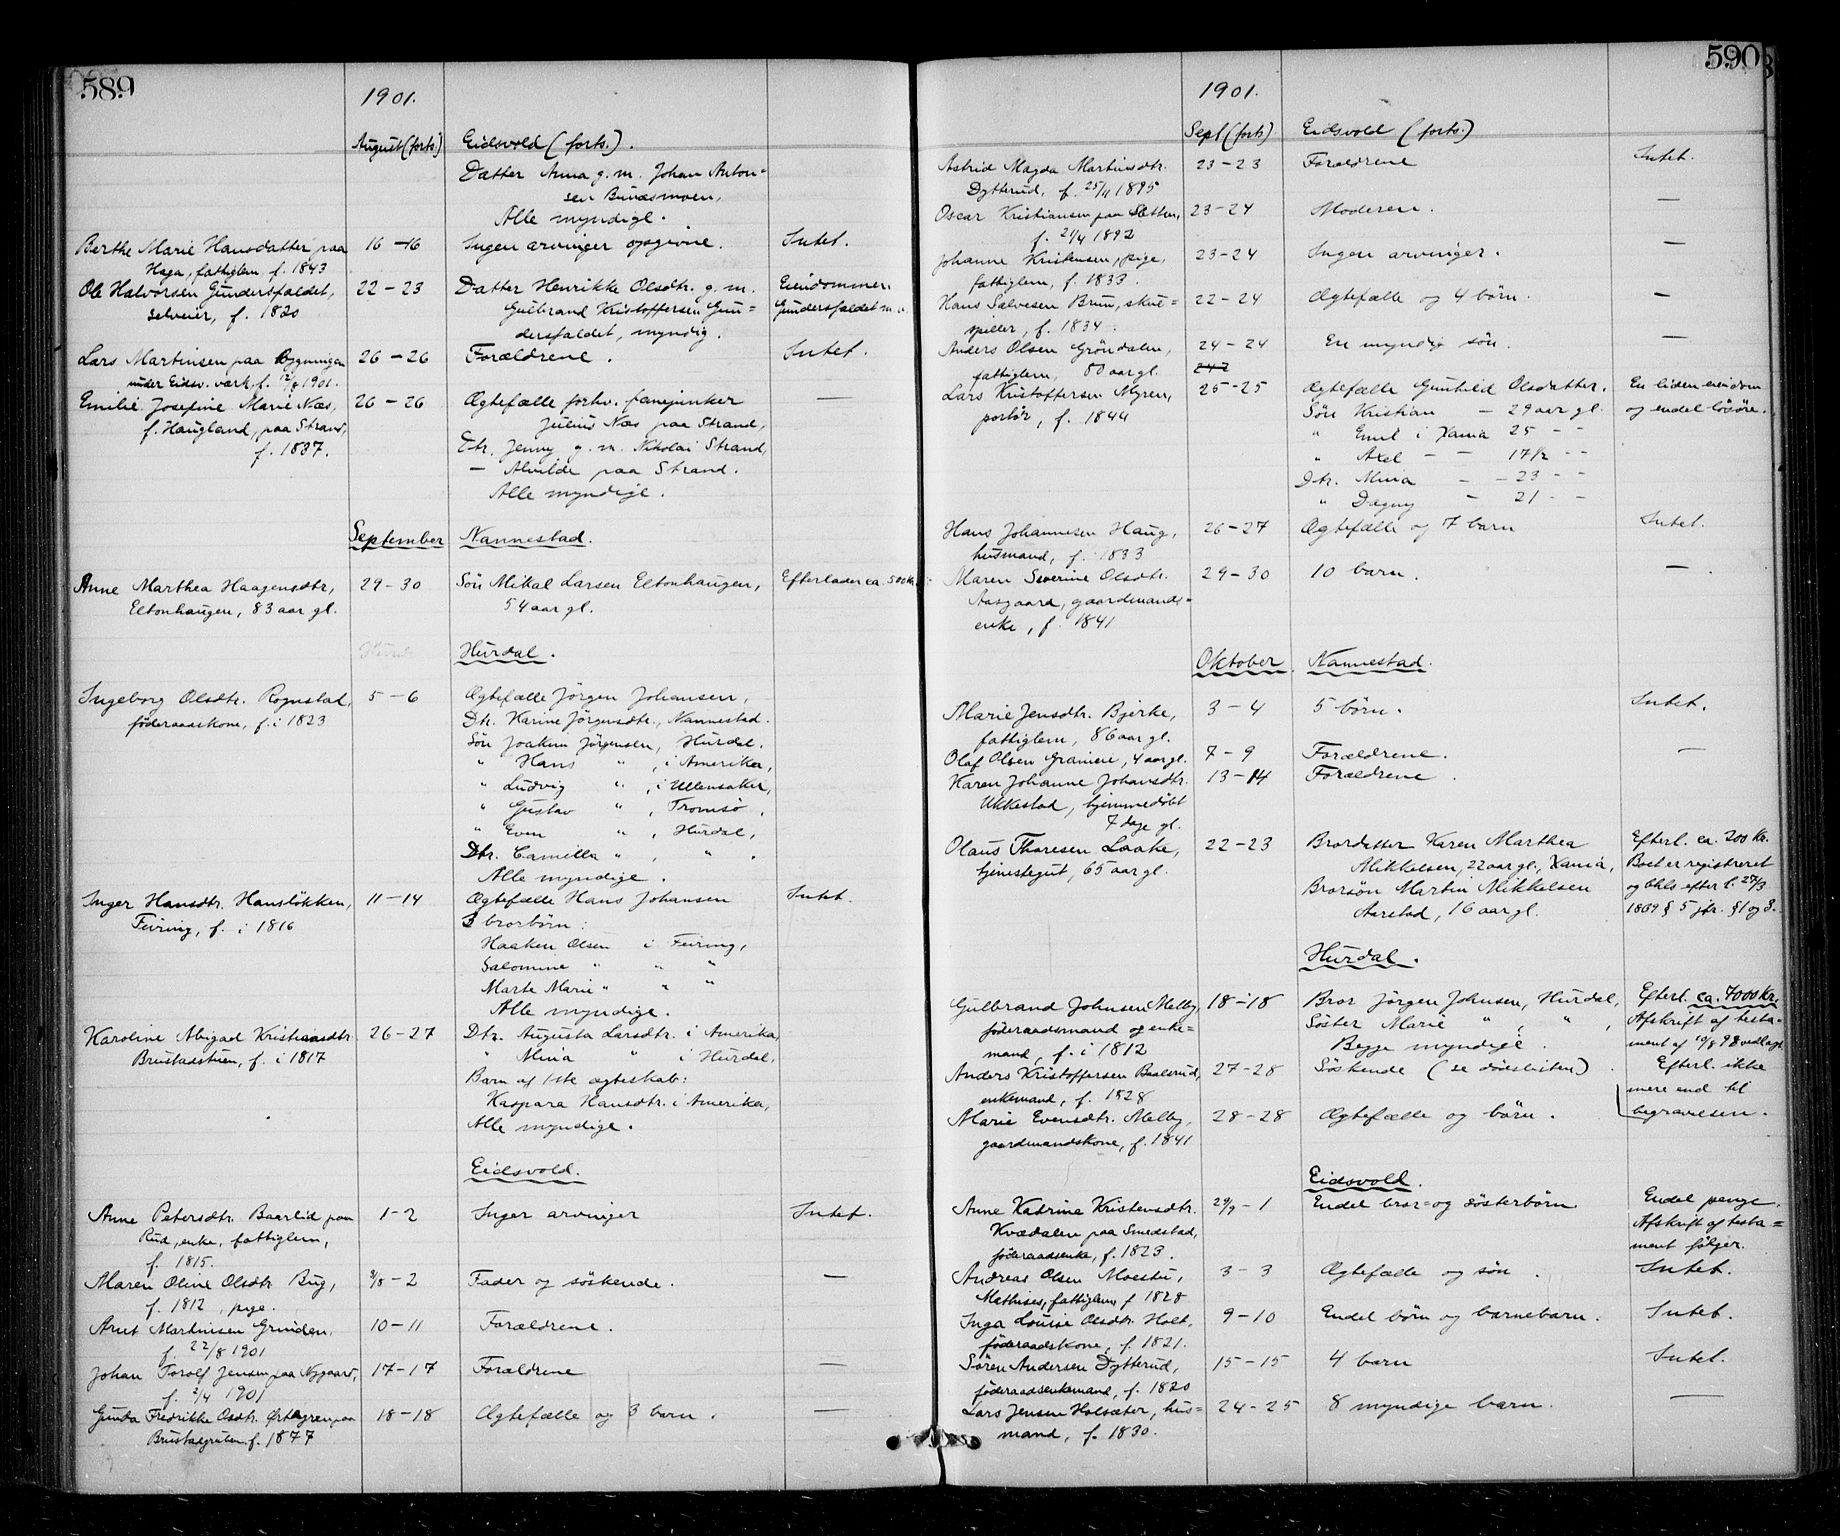 589
1901.
August (forts.) Eidsvold (forts.).
Datter Anna g. m. Johan Anton=
sen Bunæsmoen,
Alle myndige.
Berthe Marie Hansdatter paa 16–16 Ingen arvinger opgivne. Intet.
Haga, fattiglem, f. 1843
Ole Halvorsen Gundersfaldet, 22–23 Datter Henrikke Olsdtr. g. m. Eiendommen
selveier, f. 1820 Gulbrand Kristoffersen Gun= Gundersfaldet m.
dersfaldet, myndig.
Lars Martinsen paa Bygningen 26–26 Forældrene. Intet.
under Eidsv. værk, f. 12/8 1901.
Emilie Josefine Marie Næs, 26–26 Ægtefælle forhv. fanejunker —
f. Haugland, paa Strand, Julius Næs paa Strand,
f. 1837. Dtr. Jenny g. m. Nikolai Strand,
— Alvilde paa Strand.
Alle myndige.
September Nannestad.
Anne Marthea Haagensdtr, 29–30 Søn Mikal Larsen Eltonhaugen, Efterlader ca. 500 Kr.
Eltonhaugen, 83 aar gl. 54 aar gl.
Hurdal.
Ingeborg Olsdtr. Rognstad, 5–6 Ægtefælle Jörgen Johansen,
föderaadskone, f. i 1823 Dtr. Karine Jörgensdtr., Nannestad.
Søn Joakim Jörgensen, Hurdal.
" Hans " , i Amerika,
" Ludvig " , i Ullensaker,
" Gustav " , Tromsö,
" Even " , Hurdal,
Dtr. Camilla " , " .
Alle myndige.
Inger Hansdtr. Hanslökken, 11–14 Ægtefælle Hans Johansen Intet.
Feiring, f. i 1816 3 brorbörn:
Haaken Olsen i Feiring,
Salomine " " "
Marte Marie " " "
Alle myndige.
Karoline Abigael Kristiansdtr. 26–27 Dtr. Augusta Larsdtr. i Amerika,
Brustadstuen, f. i 1817 " Mina " i Hurdal,
Barn af 1ste ægteskab:
Kaspara Hansdtr. i Amerika,
Alle myndige.
Eidsvold.
Anne Petersdtr. Baarlid paa 1–2 Inger arvinger Intet.
Rud, enke, fattiglem,
f. 1815.
Maren Oline Olsdtr. Bug, 3/8–2 Fader og söskende. —
f. 1812, pige.
Arnt Martinsen Grinden, 10–11 Forældrene.
f. 22/8 1901
Johan Torolf Jensen paa Nygaard, 17–17 Forældrene —
f. 2/4 1901
Gunda Fredrikke Osdtr. Örtegren paa 18–18 Ægtefælle og 3 barn. —
Brustadgruben, f. 1877
590
1901.
Sept (forts) Eidsvold (forts.)
Astrid Magda Martinsdtr. 23–23 Forældrene Intet.
Dytterud, f. 25/11 1895
Oscar Kristiansen paa Sletten, 23–24 Moderen. —
f. 21/4 1892
Johanne Kristensen, pige, 23–24 Ingen arvinger. —
fattiglem, f. 1833
Hans Salvesen Brun, skue= 22–24 Ægtefælle og 4 börn. —
spiller, f. 1834.
Anders Olsen Gröndalen, 24–24 En myndig sön. —
fattiglem, 80 aar gl.
Lars Kristoffersen Myren, 25–25 Ægtefælle Gunhild Olsdatter. En liden eiendom
portör, f. 1844 Sön Kristian — 29 aar gl. og endel lösöre.
" Emil i Xania 25 - -
" Axel — — 17½ - -
Dtr. Mina — — 23 - -
" Dagny — 21 - -
Hans Johannesen Haug, 26–27 Ægtefælle og 7 barn Intet.
husmand, f. 1833
Maren Severine Olsdtr. 29–30 10 barn. —
Aasgaard, gaardmands=
enke, f. 1841
Oktober. Nannestad.
Marie Jensdtr. Bjerke, 3–4 5 börn. Intet.
fattiglem, 86 aar gl.
Olaf Olsen Gramere, 4 aar gl. 7–9 Forældrene. —
Karen Johanne Johansdtr. 13–14 Forældrene.
Ukkestad, hjemmedöbt
7 dage gl.
Olaus Thoresen Laake, 22–23 Brordatter Karen Marthea Efterl. ca. 200 Kr.
tjenestegut, 65 aar gl. Mikkelsen, 22 aar gl., Xania, Boet er registreret
Brorsön Martin Mikkelsen og bhls efter l. 27/3
Aarstad, 16 aar gl. 1869 § 5 jfr. § 1 og 3.
Hurdal.
Gulbrand Johnsen Melby, 18–18 Bror Jörgen Johnsen, Hurdal, Efterl. ca. 7000 Kr.
föderaadsmand og enke= Söster Marie " , " , Afskrift af testa=
mand, f. i 1812 Begge myndige. ment af 10/8 98 vedlagt
Anders Kristoffersen Baalsrud, 27–28 Söskende (se dödslisten). Efterl. ikke
enkemand, f. 1828 mere end til
Marie Evensdtr. Melby, 28–28 Ægtefælle og börn. begravelsen.
gaardmandskone, f. 1841
Eidsvold.
Anne Katrine Kristensdtr. 29/9–1 Endel bror= og sösterbörn Endel penge.
Kvædalen paa Smedstad, Afskrift af testa=
föderaadsenke, f. 1823. ment fölger.
Andreas Olsen Moestu, 3–3 Ægtefælle og sön. Intet.
Mathises, fattiglem, f 1828
Inga Louise Olsdtr. Holt, 9–10 Endel börn og barnebarn. Intet.
föderaadskone, f. 1821.
Sören Andersen Dytterud, 15–15 4 barn Intet.
föderaadsenkemand, f. 1820
Lars Jensen Holsæter, hus= 24–25 8 myndige barn. —
mand, f. 1830.